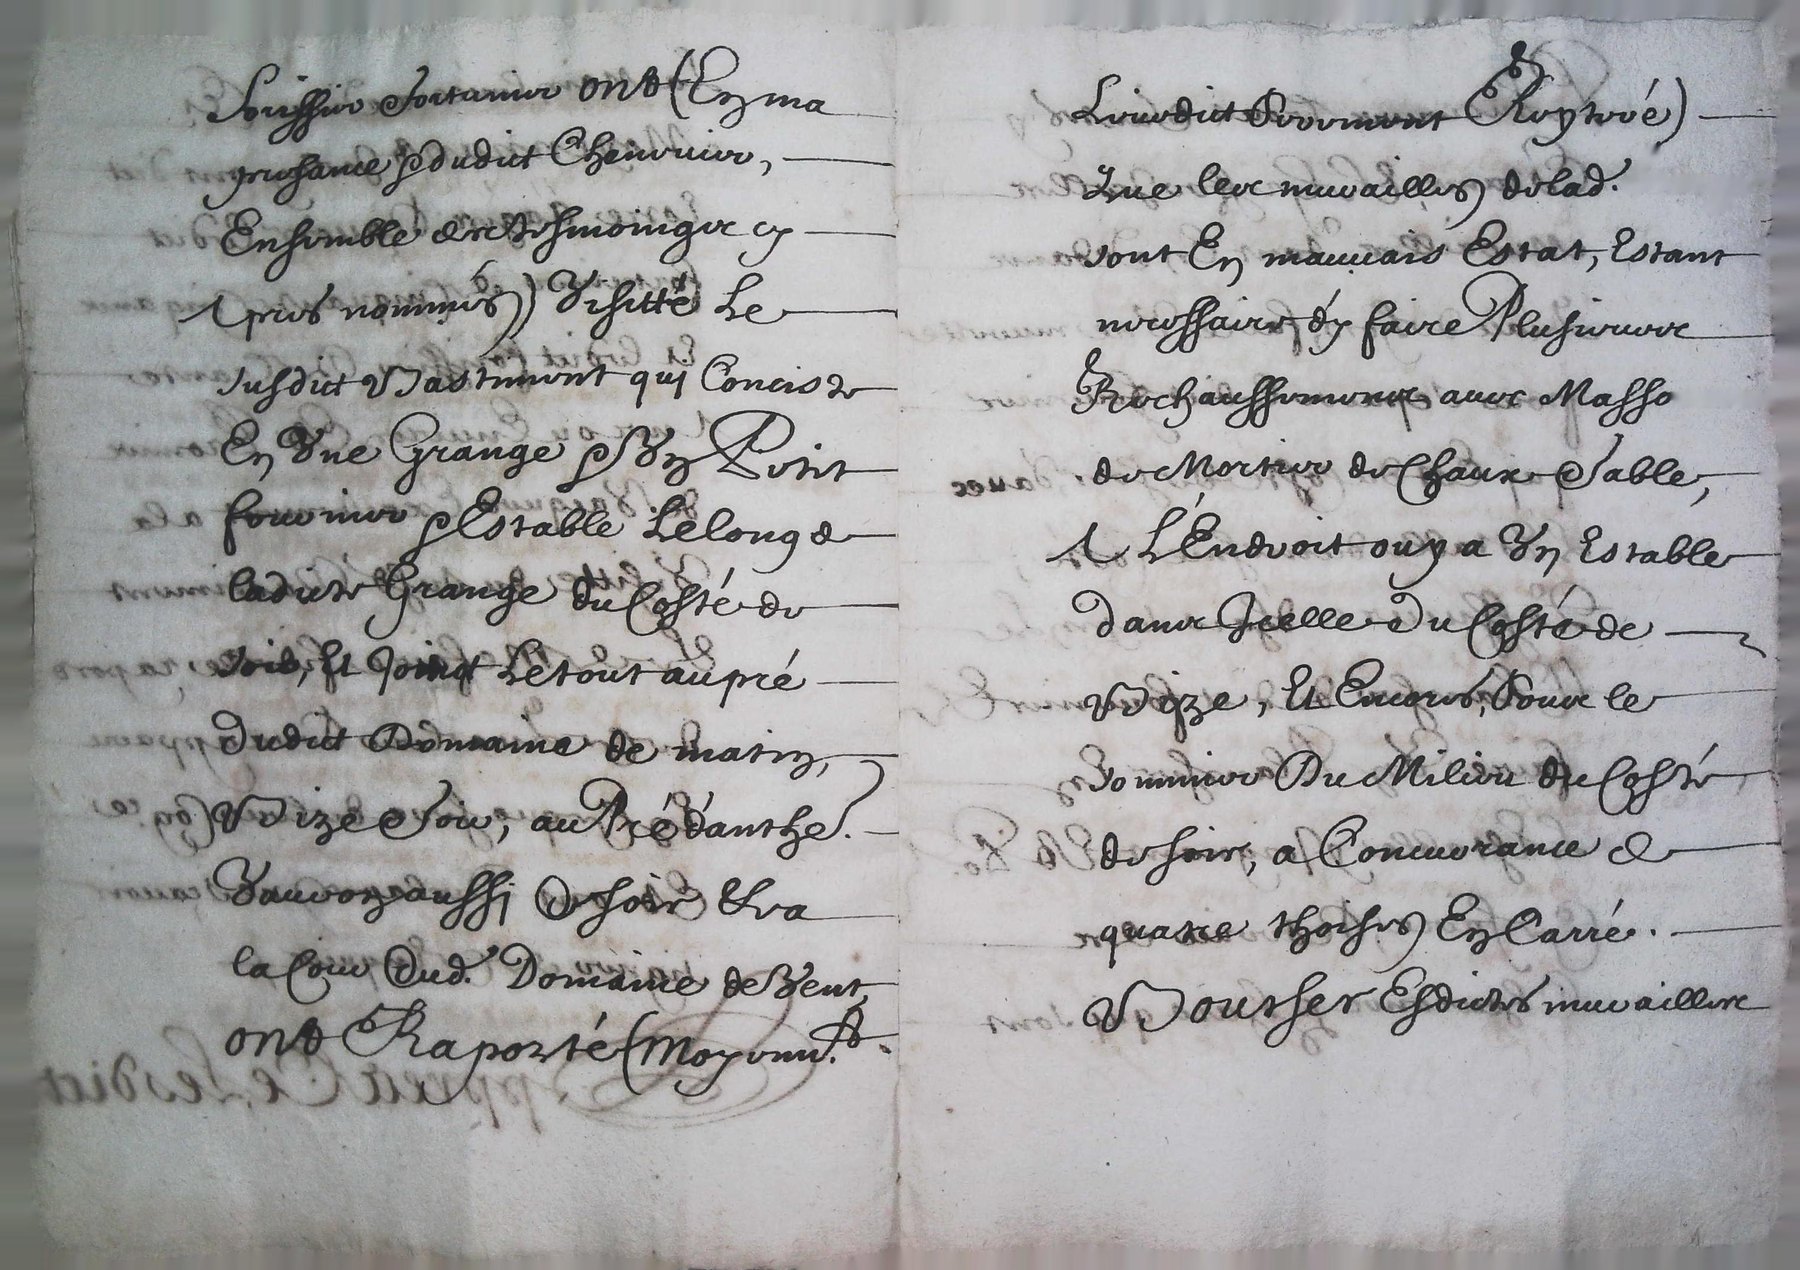 ont (En ma
presance & dudict Chenevier,
Ensemble des tesmoings cy
Apres nommés) Visitté Le
susdict Bastiment quj Consiste
En Vne Grange & Vn Petit
fournier & Estable Le long de
ladicte Grange du Costé de
soir, Et Joinct Le tout au pré
dudict Domaine de matin,
Bize Soir, au Pré d'anthe.
Vauron aussj de soir & a
la Cour dud. Domaine de Vent,
ont Raporté (moyenn.t
Leurdict Serement Reyteré)
Que les murailles de lad.
sont En mauvais Estat, Estant
necessaire d'y faire Plusieurs
Rechaussements avec Masso
de Mortier de Chaux Sable,
A L'Endroit ou y a Vn Estable
dans Jcelle du Costé de
Bize, Et Encores, Soubs le
Sommier Du Milieu du Costé
de soir, a Concurance de
quatre thoises En Carré.
Boucher Esdictes murailles